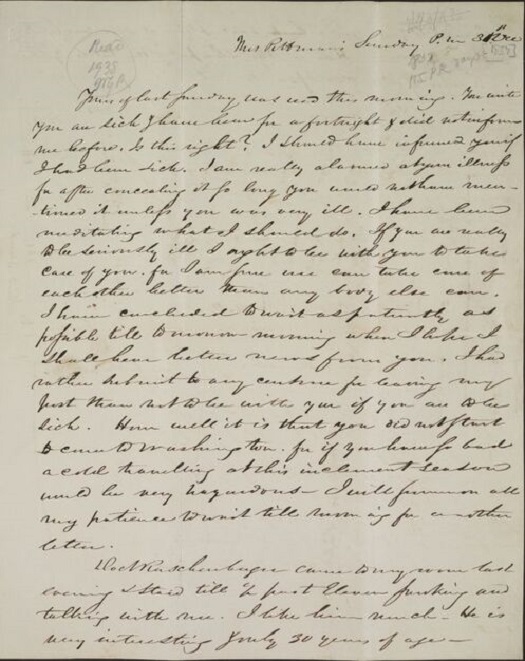 Mrs Pittman's Sunday P.m 31 Dec
Read
1935
Yours of last Sunday was recd this morning. You write
you are sick & have been for a fortnight & did not inform
me before. Is this right? I should have informed you if
I had been sick. I am really alarmed at your illness
for after concealing it so long you would not have men-
-tioned it unless you was very ill. I have been
meditating what I should do. If you are really
to be seriously ill I ought to be with you to take
care of you. for I am sure we can take care of
each other better than any body else can.
I have concluded to wait as patiently as
possible till tomorrow morning when I hope I
shall have better news from you. I had
rather submit to any censure for leaving my
post than not to be with you if you are to be
sick. How well it is that you did not start
to come to Washington. for if you have so bad
a cold travelling at this inclement season
would be very hazardous - I will summon all
my patience to wait till morning for another
letter.
Doct Ruschenberger came to my room last
evening & staid till ½ past Eleven smoking and
talking with me. I like him much - He is
very interesting & only 30 years of age -